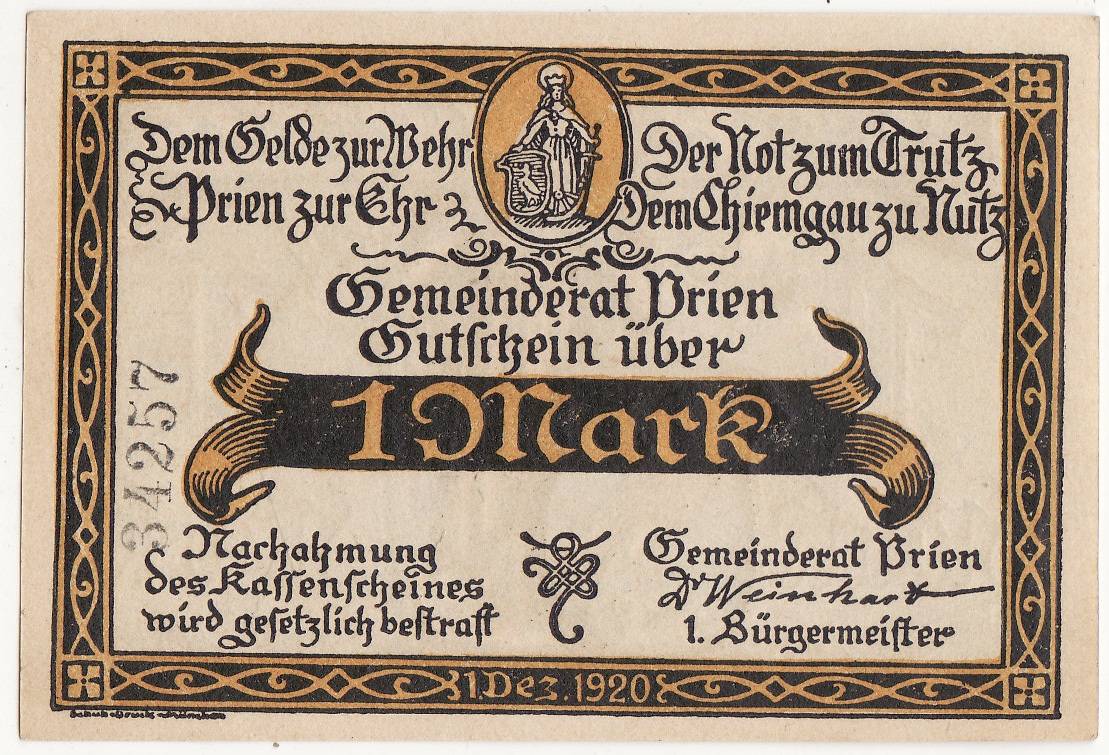 Dem Gelde zur Wehr
Prien zur Ehr
Der Not zum Trutz
Dem Chiemgau zu Nutz
Gemeinderat Prien
Gutschein über
1 Mark
34257
Nachahmung
des Kassenscheines
wird gesetzlich bestraft
Gemeinderat Prien
Dr Weinhart
1. Bürgermeister
1. Dez. 1920